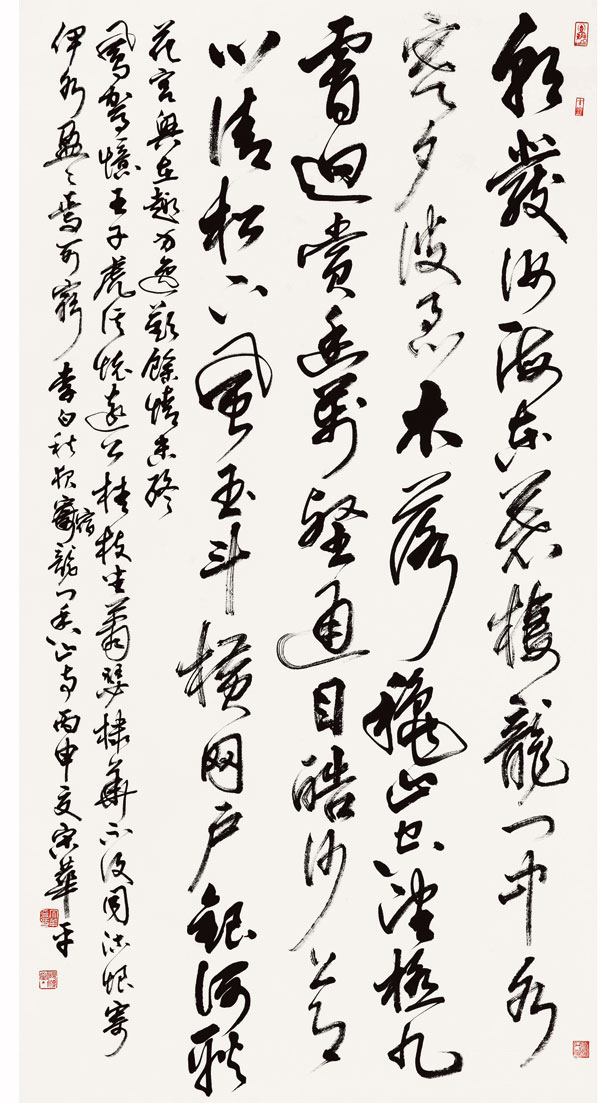 朝發汝海東暮棲龍門中水
寒夕波急木落穐山空望極九
霄迥賞幽萬壑通目皓沙上月
心清松下風玉斗橫网户銀河耿
花宮興在趣方逸歡餘情未終
鳳駕憶王子虎溪懷遠公桂枝坐蕭瑟棣華不復同流恨寄
伊水盈々焉可窮 李白秋夜宿龍門香山寺 丙申夏宋華平